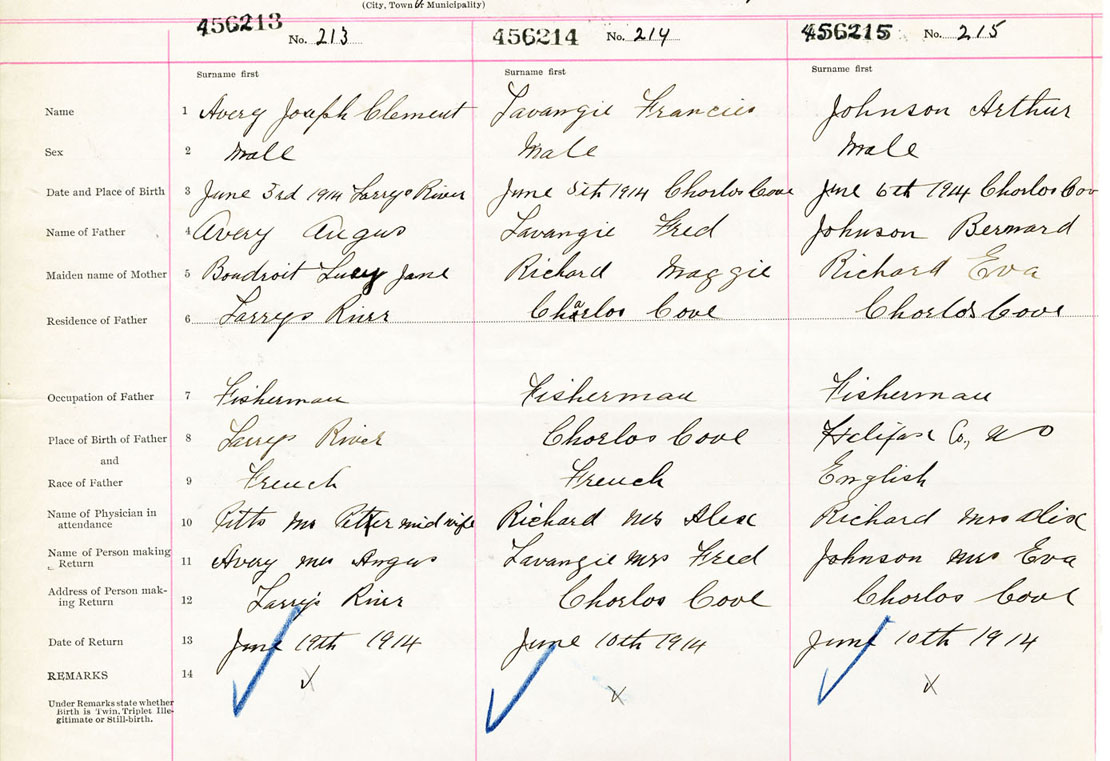 (City, Town or Municipality)
456213 No. 213 456214 No. 214 456215 No. 215
Surname first Surname first Surname first
Name 1 Avery Joseph Clement Lavangie Francies Johnson Arthur
Sex 2 Male Male Male
Date and Place of Birth 3 June 3rd 1914 Larrys River June 5th 1914 Chorlos Cove June 6th 1914 Chorlos Cov
Name of Father 4 Avery Angus Lavangie Fred Johnson Bernard
Maiden name of Mother 5 Boudroit Lucy Jane Richard Maggie Richard Eva
Residence of Father 6 Larrys River Charlos Cove Chorlos Cove
Occupation of Father 7 Fisherman Fisherman Fisherman
Place of Birth of Father 8 Larrys River Chorlos Cove Helifax Co,
and
Race of Father 9 French French English
Name of Physician in
attendance 10 Pitts Mrs Petter midwife Richard Mrs Alex Richard Mrs Alex
Name of Person making
Return 11 Avery Mrs Angus Lavangie Mrs Fred Johnson Mrs Eva
Address of Person mak-
ing Return 12 Larry's River Chorlos Cove Chorlos Cove
Date of Return 13 June 19th 1914 June 10th 1914 June 10th 1914
REMARKS 14 X X X
Under Remarks state whether
Birth is Twin, Triplet Ille-
gitimate or Still-birth.